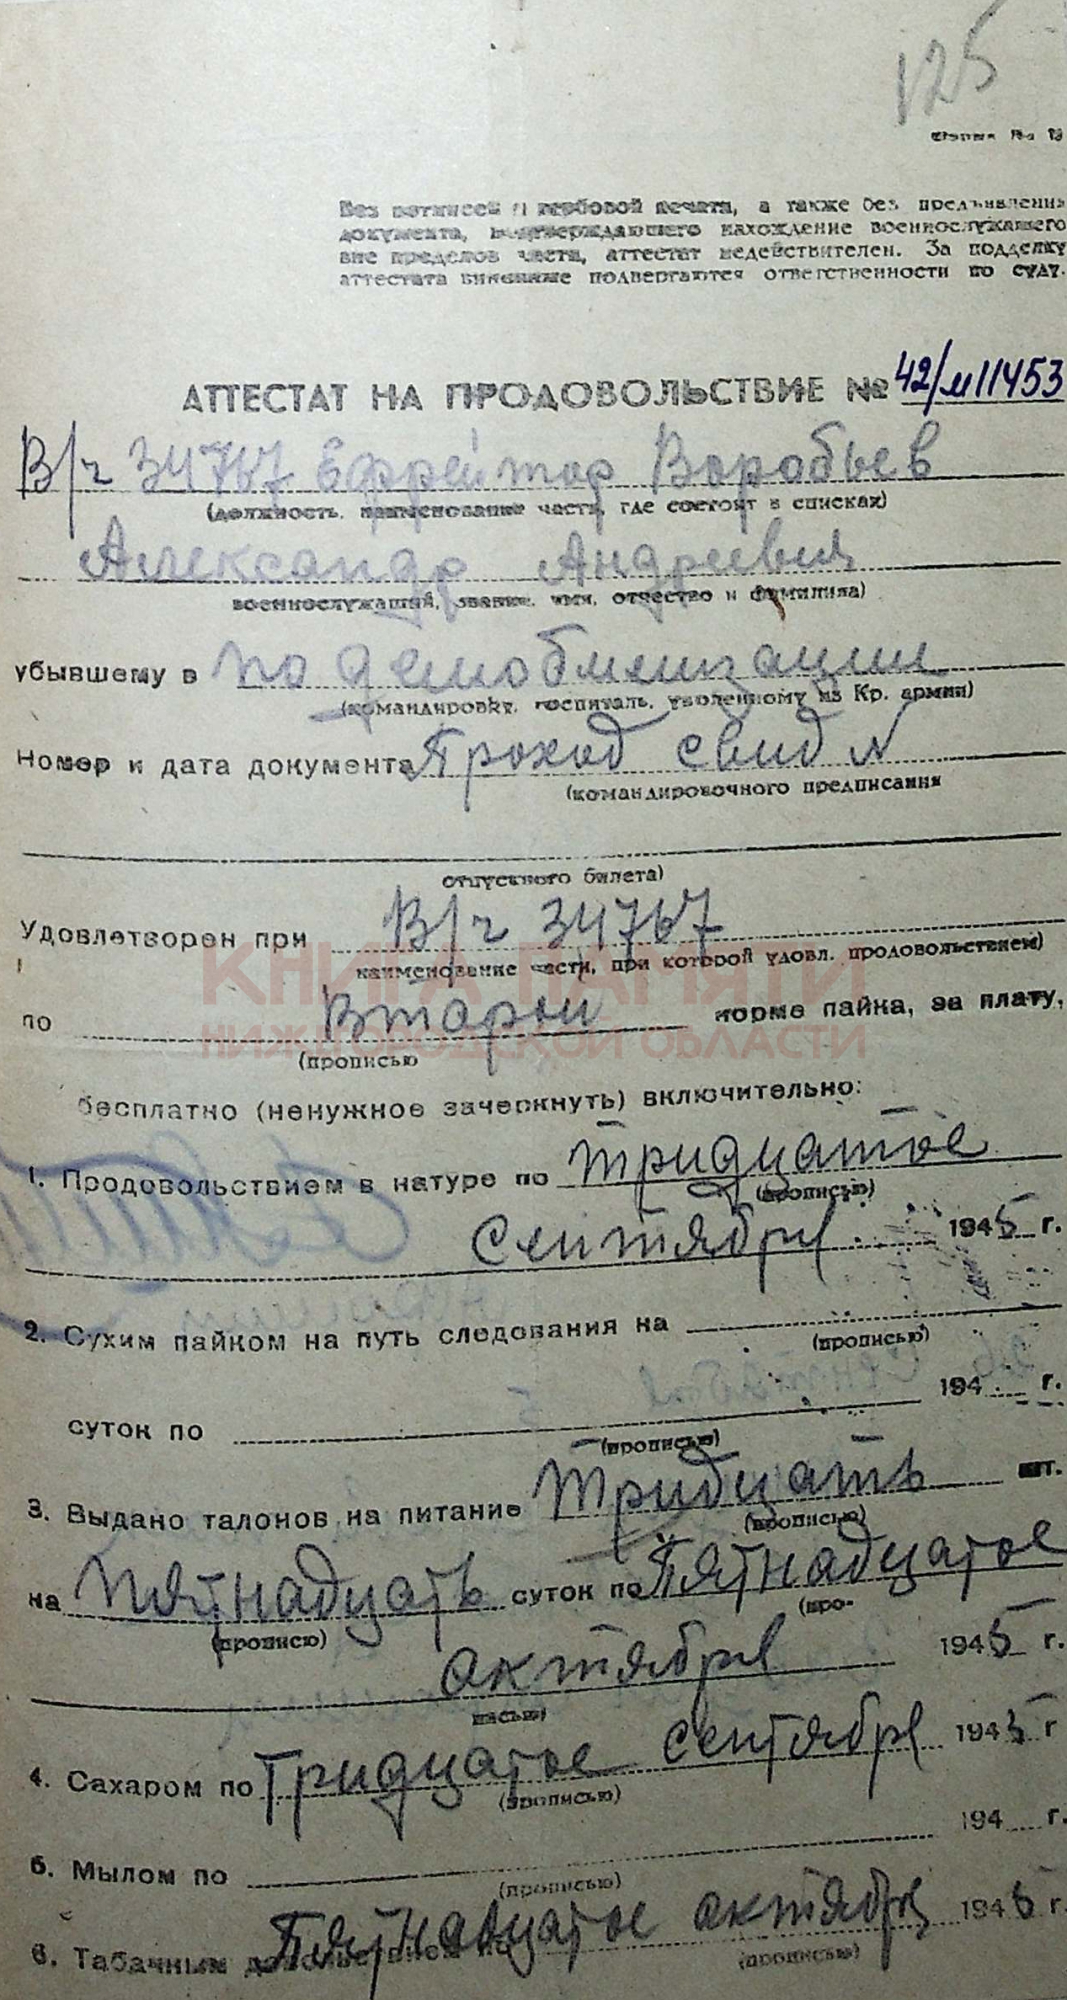 125
Форма № 13
Без подписей и гербовой печати, а также без предъявления
документа, подтверждающего нахождение военнослужащего
вне пределов части, аттестат недействителен. За подделку
аттестата виновные подвергаются ответственности по суду.
АТТЕСТАТ НА ПРОДОВОЛЬСТВИЕ № 42/м11453
В/ч 34767 Ефрейтор Воробьев
(должность, наименование части, где состоят в списках)
Александр Андреевич
военнослужащий, звание, имя, отчество и фамилия)
убывшему в по демобилизации
(командировку, госпиталь, уволенному из Кр. армии)
Номер и дата документа Проход свид N
(командировочного предписания
отпускного билета)
Удовлетворен при В/ч 34767
наименование части, при которой удовл. продовольствием)
КНИГА ПАМЯТИ
по Второй норме пайка, за плату,
НИЖЕГОРОДСКОЙ ОБЛАСТИ
(прописью
бесплатно (ненужное зачеркнуть) включительно:
1. Продовольствием в натуре по тридцатое
(прописью)
сентября 1945 г.
2. Сухим пайком на путь следования на
(прописью)
суток по 194 г.
(прописью)
3. Выдано талонов на питание Тридцать шт.
(прописью)
на пятнадцать суток по Пятнадцатое
(прописю) (про-
октября 1945 г.
писью)
4. Сахаром по Тридцатое сентября 1945 г
(прописью)
5. Мылом по 194 г.
(прописью)
6. Табачным довольствием по Пятнадцатое октября 1945 г.
(прописью)